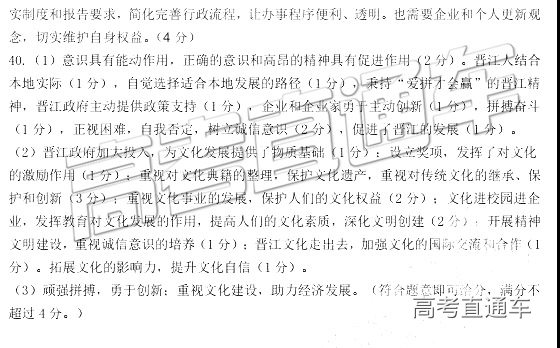 实制度和报告要求，简化完善行政流程，让办事程序便利、透明。也需要企业和个人更新观
念，切实维护自身权益。（4 分）
40.（1）意识具有能动作用，正确的意识和高昂的精神具有促进作用（2 分）。晋江人结合
本地实际（1 分），自觉选择适合本地发展的路径（1 分），秉持“爱拼才会赢”的晋江精
神，晋江政府主动提供政策支持（1 分），企业和企业家勇于主动创新（1 分），拼搏奋斗
（1 分），正视困难，自我否定，树立诚信意识（2 分），促进了晋江的发展（1 分）。
（2）晋江政府加大投入，为文化发展提供了物质基础（1 分）；设立奖项，发挥了对文化
的激励作用（1 分）；重视对文化典籍的整理，保护文化遗产，重视对传统文化的继承、保
护和创新（3 分）；重视文化事业的发展，保护人们的文化权益（2 分）；文化进校园进企
业，发挥教育对文化发展的作用，提高人们的文化素质，深化文明创建（2 分）；开展精神
文明建设，重视诚信意识的培养（1 分）；晋江文化走出去，加强文化的国际交流和合作（1
分）。拓展文化的影响力，提升文化自信（1 分）。
（3）顽强拼搏，勇于创新；重视文化建设，助力经济发展。（符合题意即可给分，满分不
超过 4 分。）
高考直通车
高考直通车